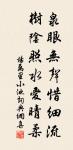 泉眼無聲惜細流
樹陰照水愛晴柔
楊萬里小池詞典網書